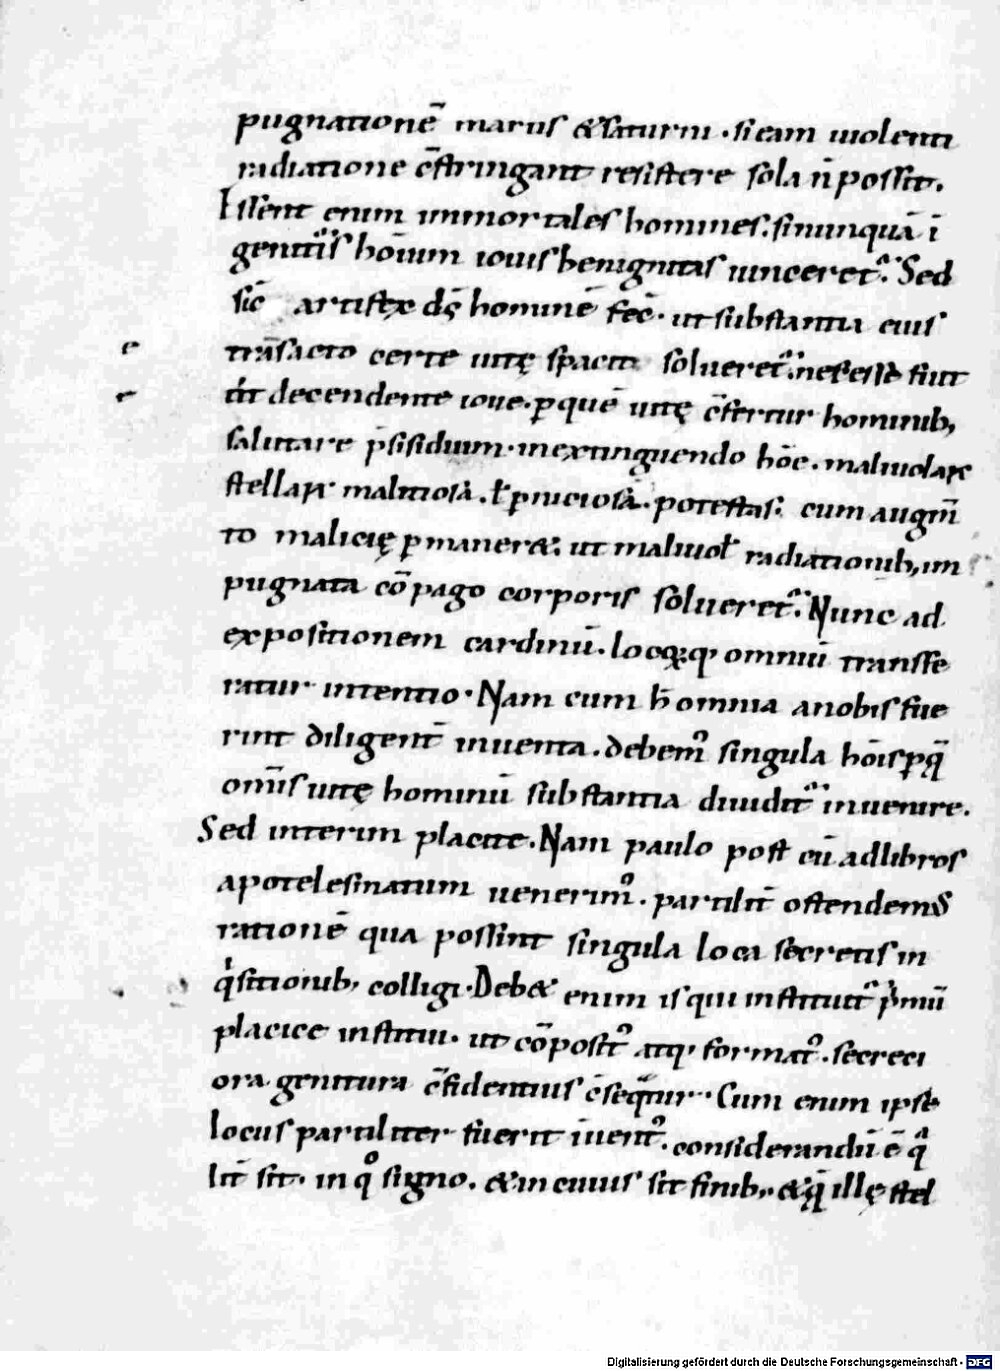 pugnationē martis &saturni · si eam uiolenti
radiatione c̄stringant resistere sola n̄ possit.
Essent enim immortales homines. si nunquā ī
genituris hōium iouis benignitas uinceret᷑. Sed
sic̄ artifex ds̄ hominē fec̄ · ut substantia eius
trāsacto certe uitę spacio solueret᷑. necesse fuit
decendente ioue. ꝑ quē uitę c̄fertur hominib,
salutare p̄sidium · in extinguendo hōe. maliuolaꝝ
stellaꝝ malitiosā. ł ꝑniciosā. potestas: cum augm̄
to malicię ꝑmaner&. ut maliuoł radiationib, im
pugnata cōpago corporis solueret᷑. Nunc ad
expositionem cardinū. locoꝝq, omniū transfe
ratur intentio · Nam cum h̄ omnia a nobis fue
rint diligent̄ inuenta. debem᷒ singula hōis ꝑ q̄
om̄is uitę hominū substantia diuidit᷑ inuenire.
Sed interim placite. Nam paulo post cū ad libros
apotelesmatum uenerim᷒. partilit̄ ostendem᷒
rationē qua possint singula loca secretis in
qͥsitionib, colligi · Deb& enim is qui instituit᷑ pͥmū
placice institui. ut cōposit᷒ atq, format᷒. secreci
ora genitura c̄fidentius c̄seq̄tur · Cum enim ipse
locus partiliter fuerit īuent᷒. considerandū ē qᷓ
lit̄ sit. in qͦ signo. &in cuius sit finib,. &q̄ illę stel
Digitalisierung gefördert durch die Deutsche Forschungsgemeinschaft - DFG